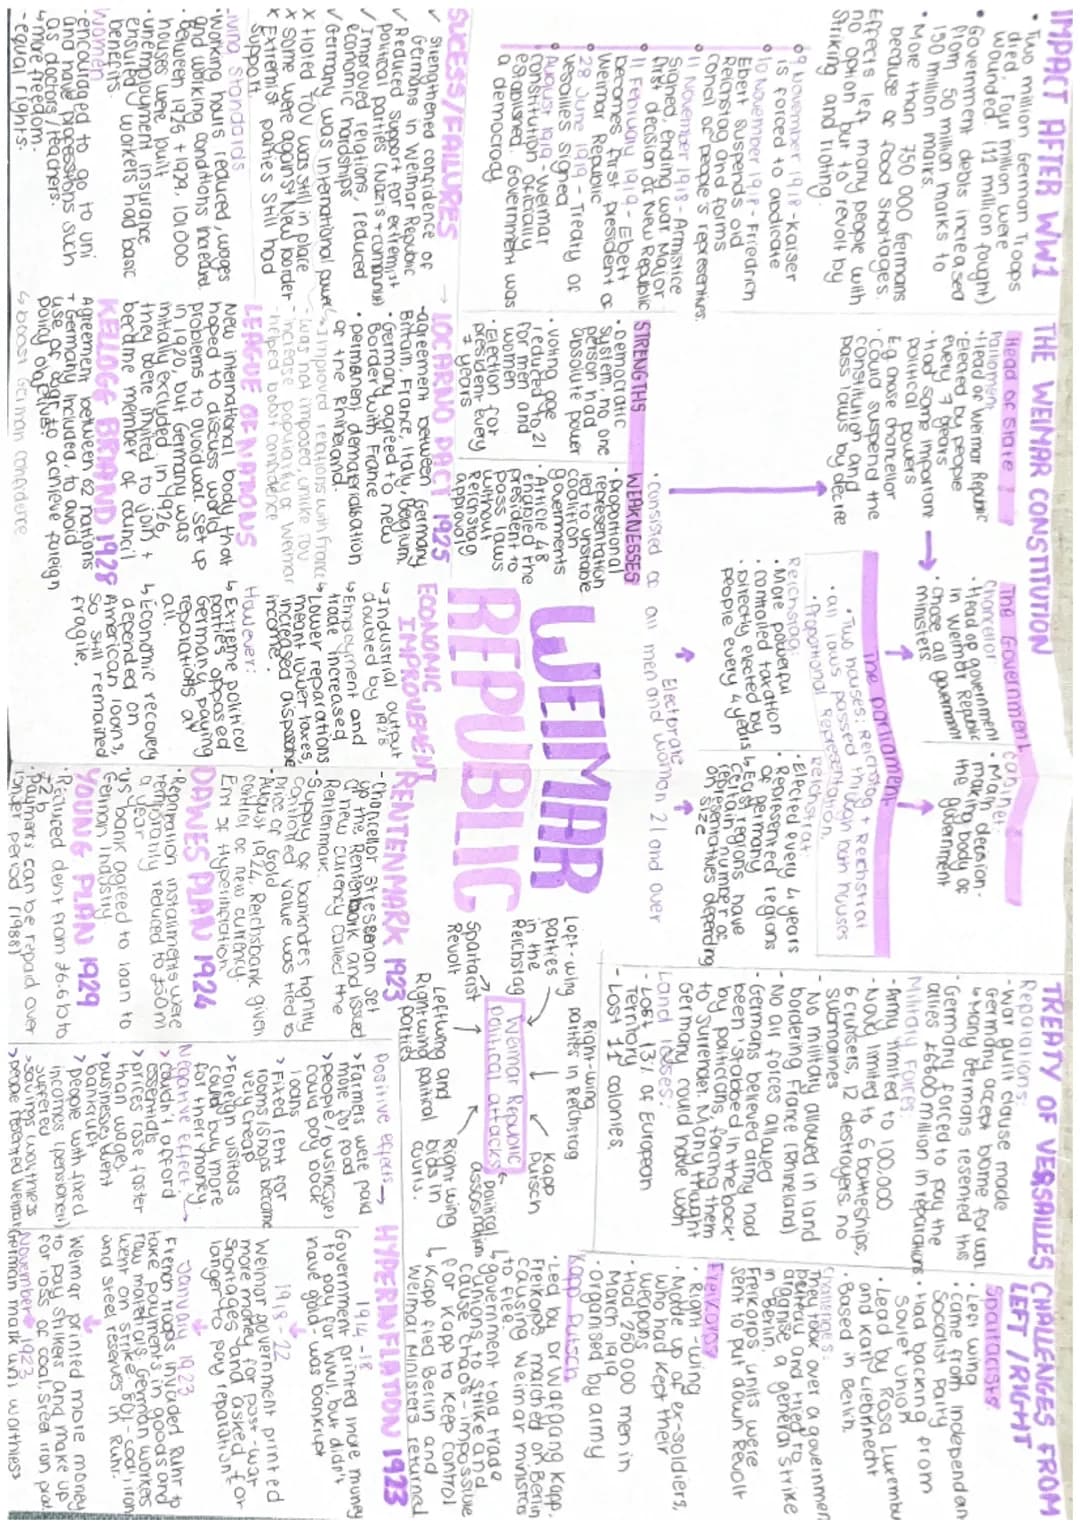 IMPACT AFTER WW1
• Two million German Troops
dred. Four million were
wounded. (11 million fought)
• Government debts increased
from 50 million marks to
150 million marks.
• More than 750 000 Germans
because of food shortages.
Effects left many people with
no option but to revolt by
striking and rioting.
9 November 1918 - Kaiser
is forced to abdicate
10 November 1918 - Friedrich
Ebert suspends old
Reichstag and forms
council of people's representives.
11 November 1918 - Armistice
signed, ending war. Major
first decision of New Republic
11 February 1919 - Ebert
becomes first president of
Weimar Republic
28 June 1919 - Treaty of
Versailles signed
August 1919 - Weimar
constitution officially
established. Government was
a democracy
THE WEIMAR CONSTITUTION
Head of State
Parliament
• Head of Weimar Republic
• Elected by people
every 7 years
• Had some important
political powers
E.g chose chancellor
• Could suspend the
constitution and
pass laws by decree
The Government
Chancellor
• Head of government
in Weimar Republic
• Chose all government
ministers
Cabinet
• Main decision-
making body of
the government
The parliament
• Two houses: Reichstag + Reichstrat
• all laws passed through both houses
• Proportional Representation.
Reichstag:
• More powerful
• controlled taxation
• directly elected by
people every 4 years
Reichstrat:
• Elected every 4 years
• Represented regions
of Germany
↳ Each regions have
certain number of
representatives depending
on size
Electorate
• Consisted of all men and woman 21 and over
STRENGTHS
• Democratic
system, no one
person had
absolute power
• Voting age
reduced to 21
for men and
women
• Election for
president every
7 years
WEAKNESSES
• proportional
representation
led to unstable
coalition
governments
• Article 48
enabled the
president to
pass laws
without
Reichstag
approval
WEIMAR
REPUBLIC
TREATY OF VERSAILLES
Reparations:
- War guilt clause made
Germany accept blame for war
↳ Many Germans resented this
Germany forced to pay the
allies £6600 million in reparations
Military Forces:
- Army limited to 100,000
- Naval limited to 6 battleships,
6 cruisers, 12 destroyers, no
submarines
- No military allowed in land
bordering France (Rhineland)
- No air forces allowed
Germans believed army had
been 'stabbed in the back'
by politicans, forcing them
to surrender. Many thought
Germany could have won
Land losses:
- Lost 13% of European
Territory
- Lost 11 colonies.
CHALLENGES FROM
LEFT / RIGHT
Spartacists
• Left wing
• Came from Independen
Socialist Party
• Had backing from
Soviet union
• Lead by Rosa Luxembu
and Karl Liebknecht
• Based in Berlin.
Challenge:
They took over a governmen
building and tried to
organise a general strike
in Berlin.
Freikorps units were
sent to put down revolt
Freikorps
• Right-wing
• Made up of ex-soldiers,
who had kept their
weapons
• Had 250 000 men in
March 1919
• Organised by army
Kapp Putsch
• Led by Dr Wolfgang Kapp.
Freikorps marched on Berlin
causing Weimar ministers
to flee
↳ government told trade
unions to strike and
cause chaos - impossible
for Kapp to keep control
↳ Kapp fled Berlin and
Weimar Ministers returned
Weimar Republic
political attacks
Left-wing
parties
in the
Reichstag
Right-wing
parties in Reichstag
Kapp
Putsch
Political
assasinations
Right wing
bias in
courts.
Left wing and
Right wing political
parties
Spartacist
Revolt
SUCESS/FAILURES
✓ Strengthened confidence of
Germans in Weimar Republic
✓ Reduced support for extremist
political parties (Nazis + communist)
✓ Improved relations, reduced
economic hardships
✓ Germany was International power
x Hated TOV was still in place
x Some were against New border
x Extremist parties still had
support
Living Standards
• Working hours reduced, wages
and working conditions increased
• Between 1925 + 1929, 101,000
houses were built
• unemployment insurance
ensured workers had basic
benefits.
Women
• encouraged to go to uni
and have professions such
as doctors/teachers.
↳ more freedom.
- equal rights.
→ LOCARNO PACT 1925
- agreement between Germany
Britain, France, Italy, Belgium.
• Germany agreed to new
Border with France
• permanent demateralisation
of the Rhineland.
↳ Improved relations with France
- was not imposed, unlike TOV
- increase popularity of Weimar
- helped boost confidence
LEAGUE OF NATIONS
New international body that
hoped to discuss world
problems to avoid war. Set up
in 1920, but Germany was
initially excluded. In 1926,
they were invited to join, +
became member of council
KELLOGG BRIAND 1928
Agreement between 62 nations
+ Germany included, to avoid
use of war to achieve foreign
policy objectives.
↳ boost German confidence
ECONOMIC
IMPROVEMENT
↳ Industrial output
doubled by
1928
↳ Employment and
trade increased
↳ Lower reparations
meant lower taxes,
increased disposable
income.
However:
↳ Extreme political
parties opposed
Germany paying
reparations at
all.
↳ Economic recovery
depended on
American loans,
so still remained
fragile.
RENTENMARK 1923
- Chancellor Stresemen set
up the Rentenbank and issued
a new currency called the
Rentenmark.
- Supply of banknotes tightly
controlled. Value was tied to
price of Gold
August 1924, Reichsbank given
control of new currency.
End of Hyperinflation.
DAWES PLAN 1924
• Reparation installments were
temporarily reduced to £50m
a year
• US bank agreed to loan to
German industry
YOUNG PLAN 1929
• Reduced debt from £6.6b to
£2b
• Payments can be repaid over
longer period (1988)
Positive effects →
> Farmers were paid
more for food
> people / businesses
could pay back
loans
> Fixed rent for
rooms / shops became
very cheap
> Foreign visitors
could buy more
for their money.
Negative Effect:
> couldn't afford
essentials
> prices rose faster
than wages.
> businesses went
bankrupt
> people with fixed
incomes (pensioners)
suffered
> savings worthless
> people resented Weimar
HYPERINFLATION 1923
1914 - 18
Government printed more money
to pay for WW1, but didn't
have gold - was bankrupt
1918 - 22
Weimar government printed
more money for post-war
shortages and asked for
longer to pay reparation
January 1923
French troops invaded Ruhr to
take payments in goods and
raw materials. German workers
went on strike. 80% - coal, iron
and steel reserves in Ruhr.
Weimar printed more money
to pay strikers and make up
for loss of coal, steel, iron prod.
November → 1923
German mark was worthless